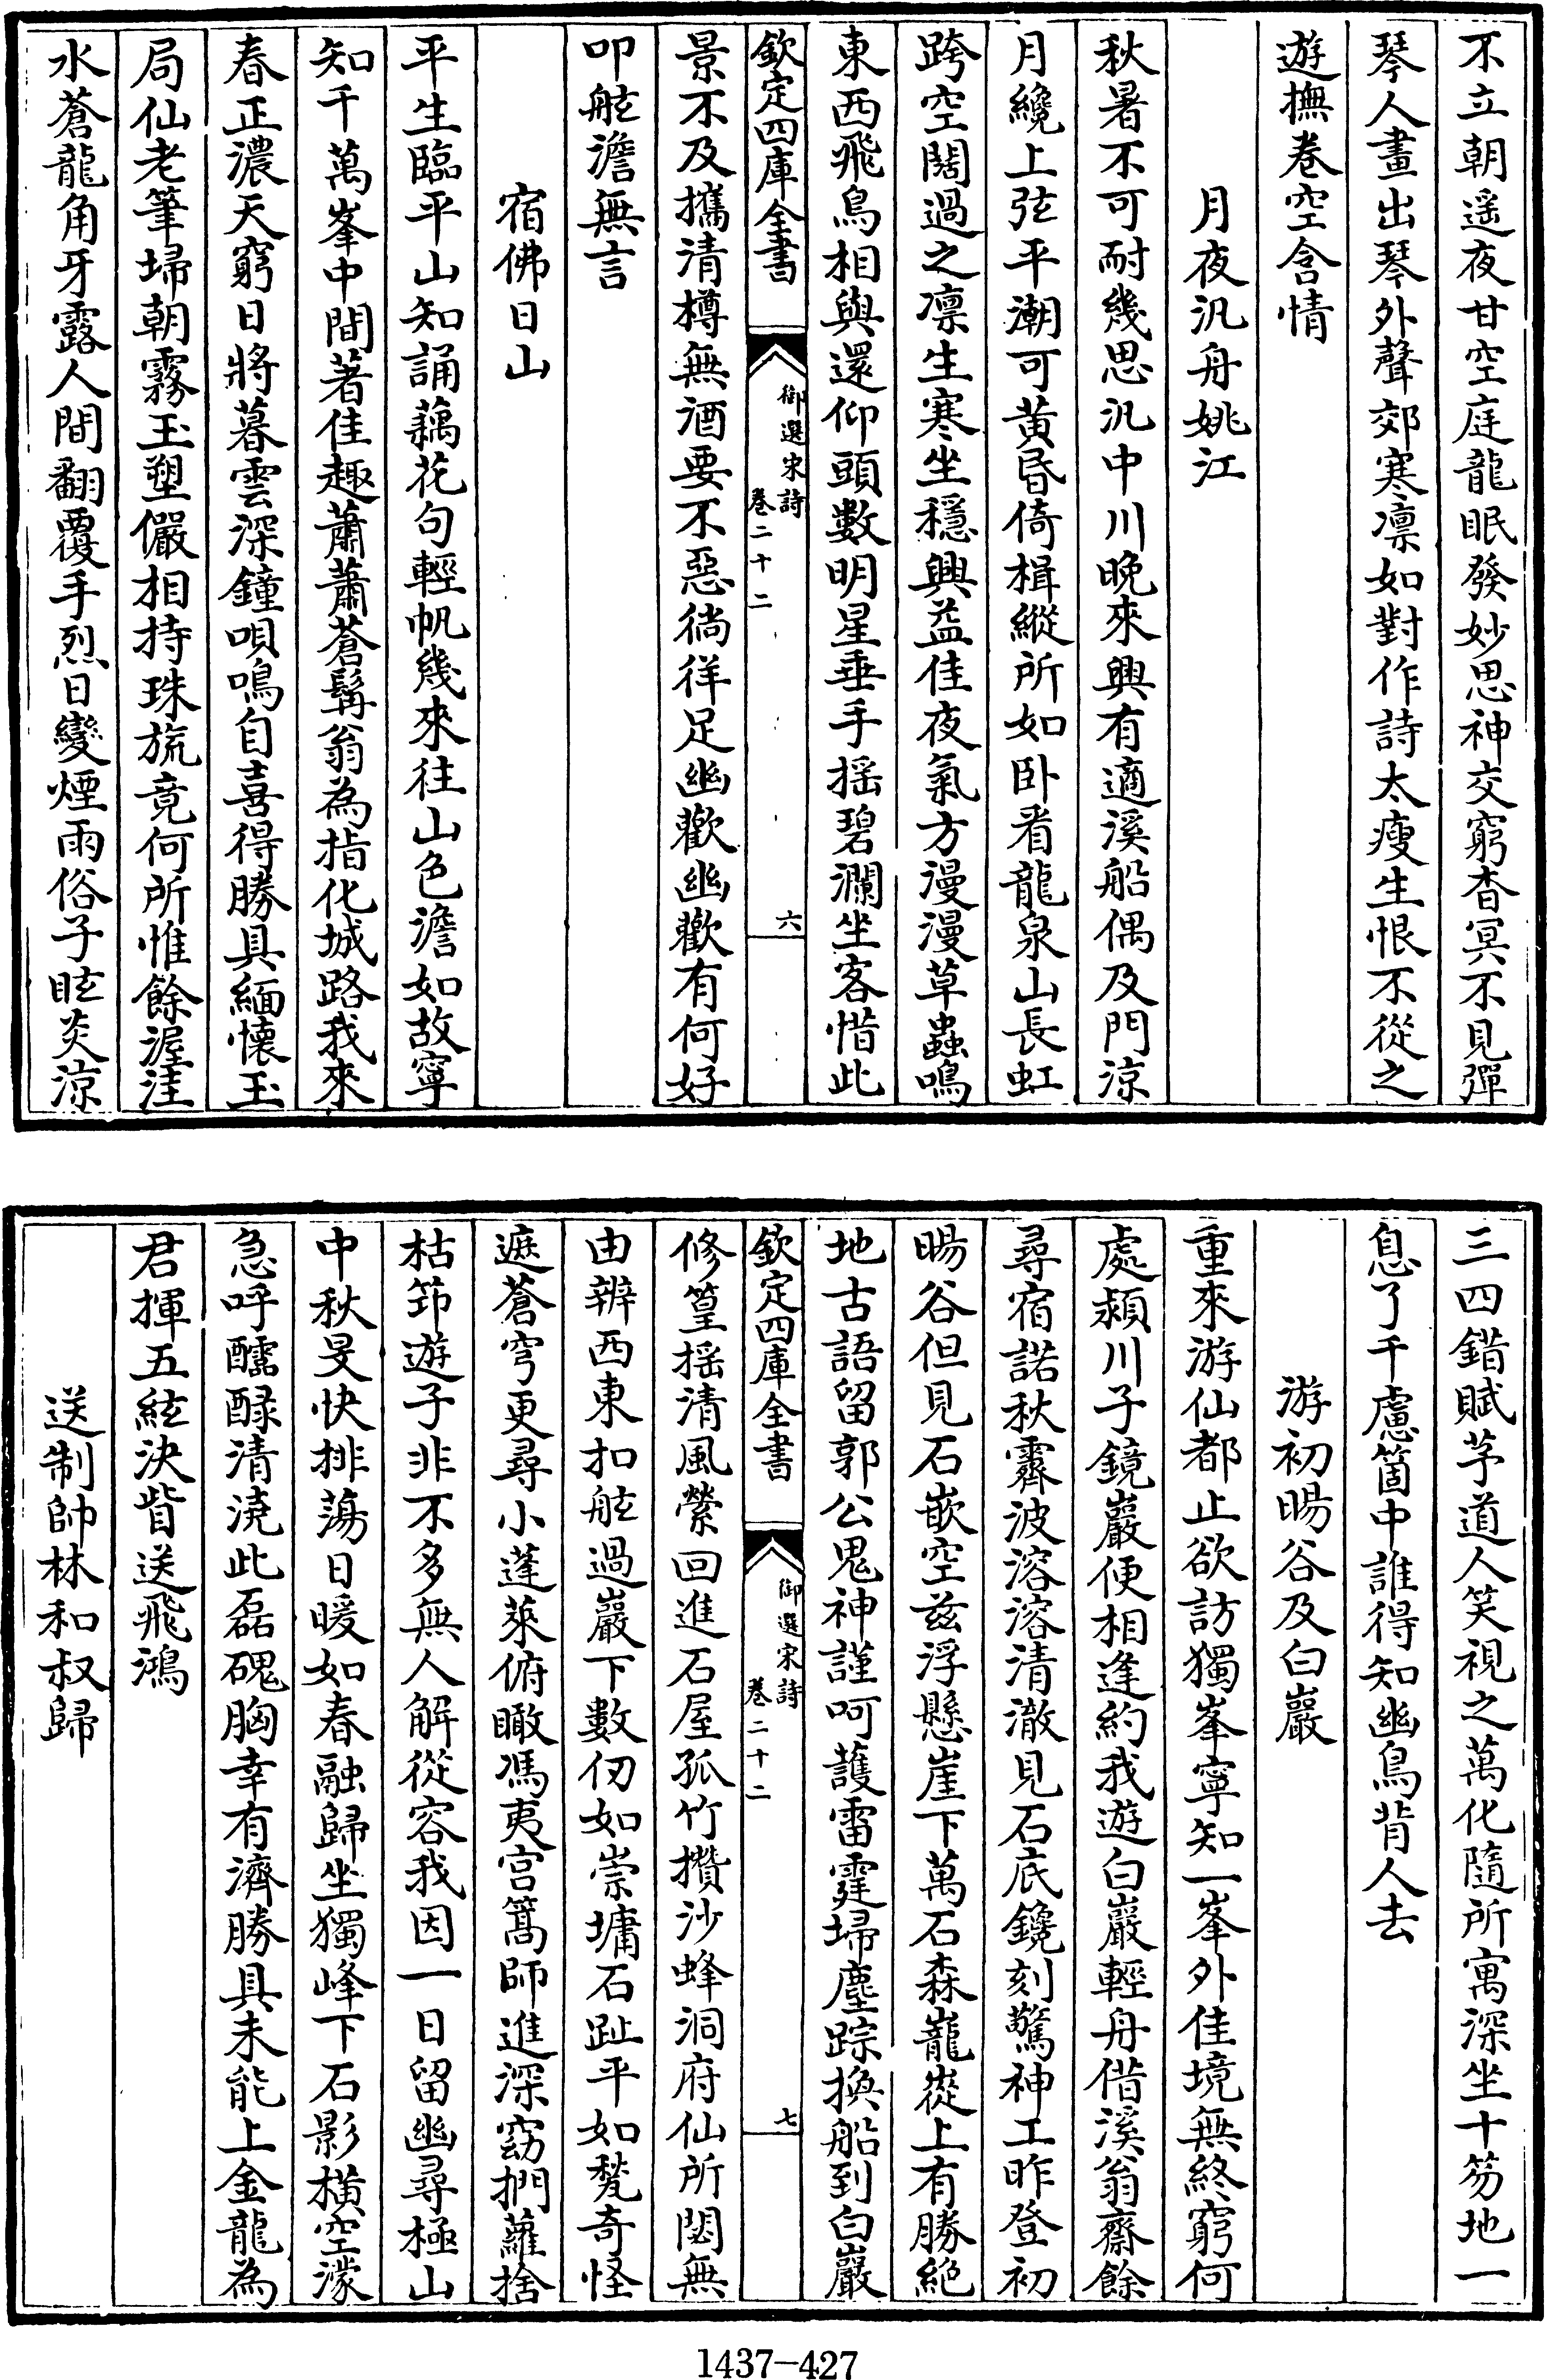 不立朝遥夜甘空庭龍眠發妙思神交窮杳冥不見彈
琴人畫出琴外聲郊寒凛如對作詩太瘦生恨不從之
遊撫卷空含情
月夜汎舟姚江
秋暑不可耐幾思汎中川晚來興有適溪船偶及門涼
月纔上弦平潮可黄昏倚楫縱所如卧看龍泉山長虹
跨空闊過之凛生寒坐穩興益佳夜氣方漫漫草蟲鳴
東西飛鳥相與還仰頭數明星垂手揺碧瀾坐客惜此
欽定四庫全書
御選宋詩
卷二十二
六
景不及攜清樽無酒要不惡徜徉足幽歡幽歡有何好
叩舷澹無言
宿佛日山
平生臨平山知誦藕花句輕帆幾來往山色澹如故寧
知千萬峯中間著佳趣蕭蕭蒼髯翁為指化城路我來
春正濃天窮日將暮雲深鐘唄鳴自喜得勝具緬懷玉
局仙老筆埽朝霧玉塑儼相持珠旒竟何所惟餘渥洼
水蒼龍角牙露人間翻覆手烈日變煙雨俗子眩炎涼
三四錯賦芧道人笑視之萬化隨所寓深坐十笏地一
息了千慮箇中誰得知幽鳥背人去
游初暘谷及白巖
重來游仙都止欲訪獨峯寧知一峯外佳境無終窮何
處潁川子鏡巖便相逢約我遊白巖輕舟借溪翁齋餘
尋宿諾秋霽波溶溶清澈見石底鑱刻驚神工昨登初
暘谷但見石嵌空兹浮懸崖下萬石森巃嵸上有勝絶
地古語留郭公鬼神謹呵護雷霆埽塵踪換船到白巖
欽定四庫全書
御選宋詩
卷二十二
七
修篁揺清風縈回進石屋孤竹攢沙蜂洞府仙所閟無
由辨西東扣舷過巖下數仞如崇墉石趾平如甃奇怪
遮蒼穹更尋小蓬萊俯瞰馮夷宫篙師進深窈捫蘿捨
枯笻遊子非不多無人解從容我因一日留幽尋極山
中秋旻快排蕩日暖如春融歸坐獨峰下石影橫空濛
急呼醽醁清澆此磊磈胸幸有濟勝具未能上金龍為
君揮五絃決眥送飛鴻
送制帥林和叔歸
1437—427